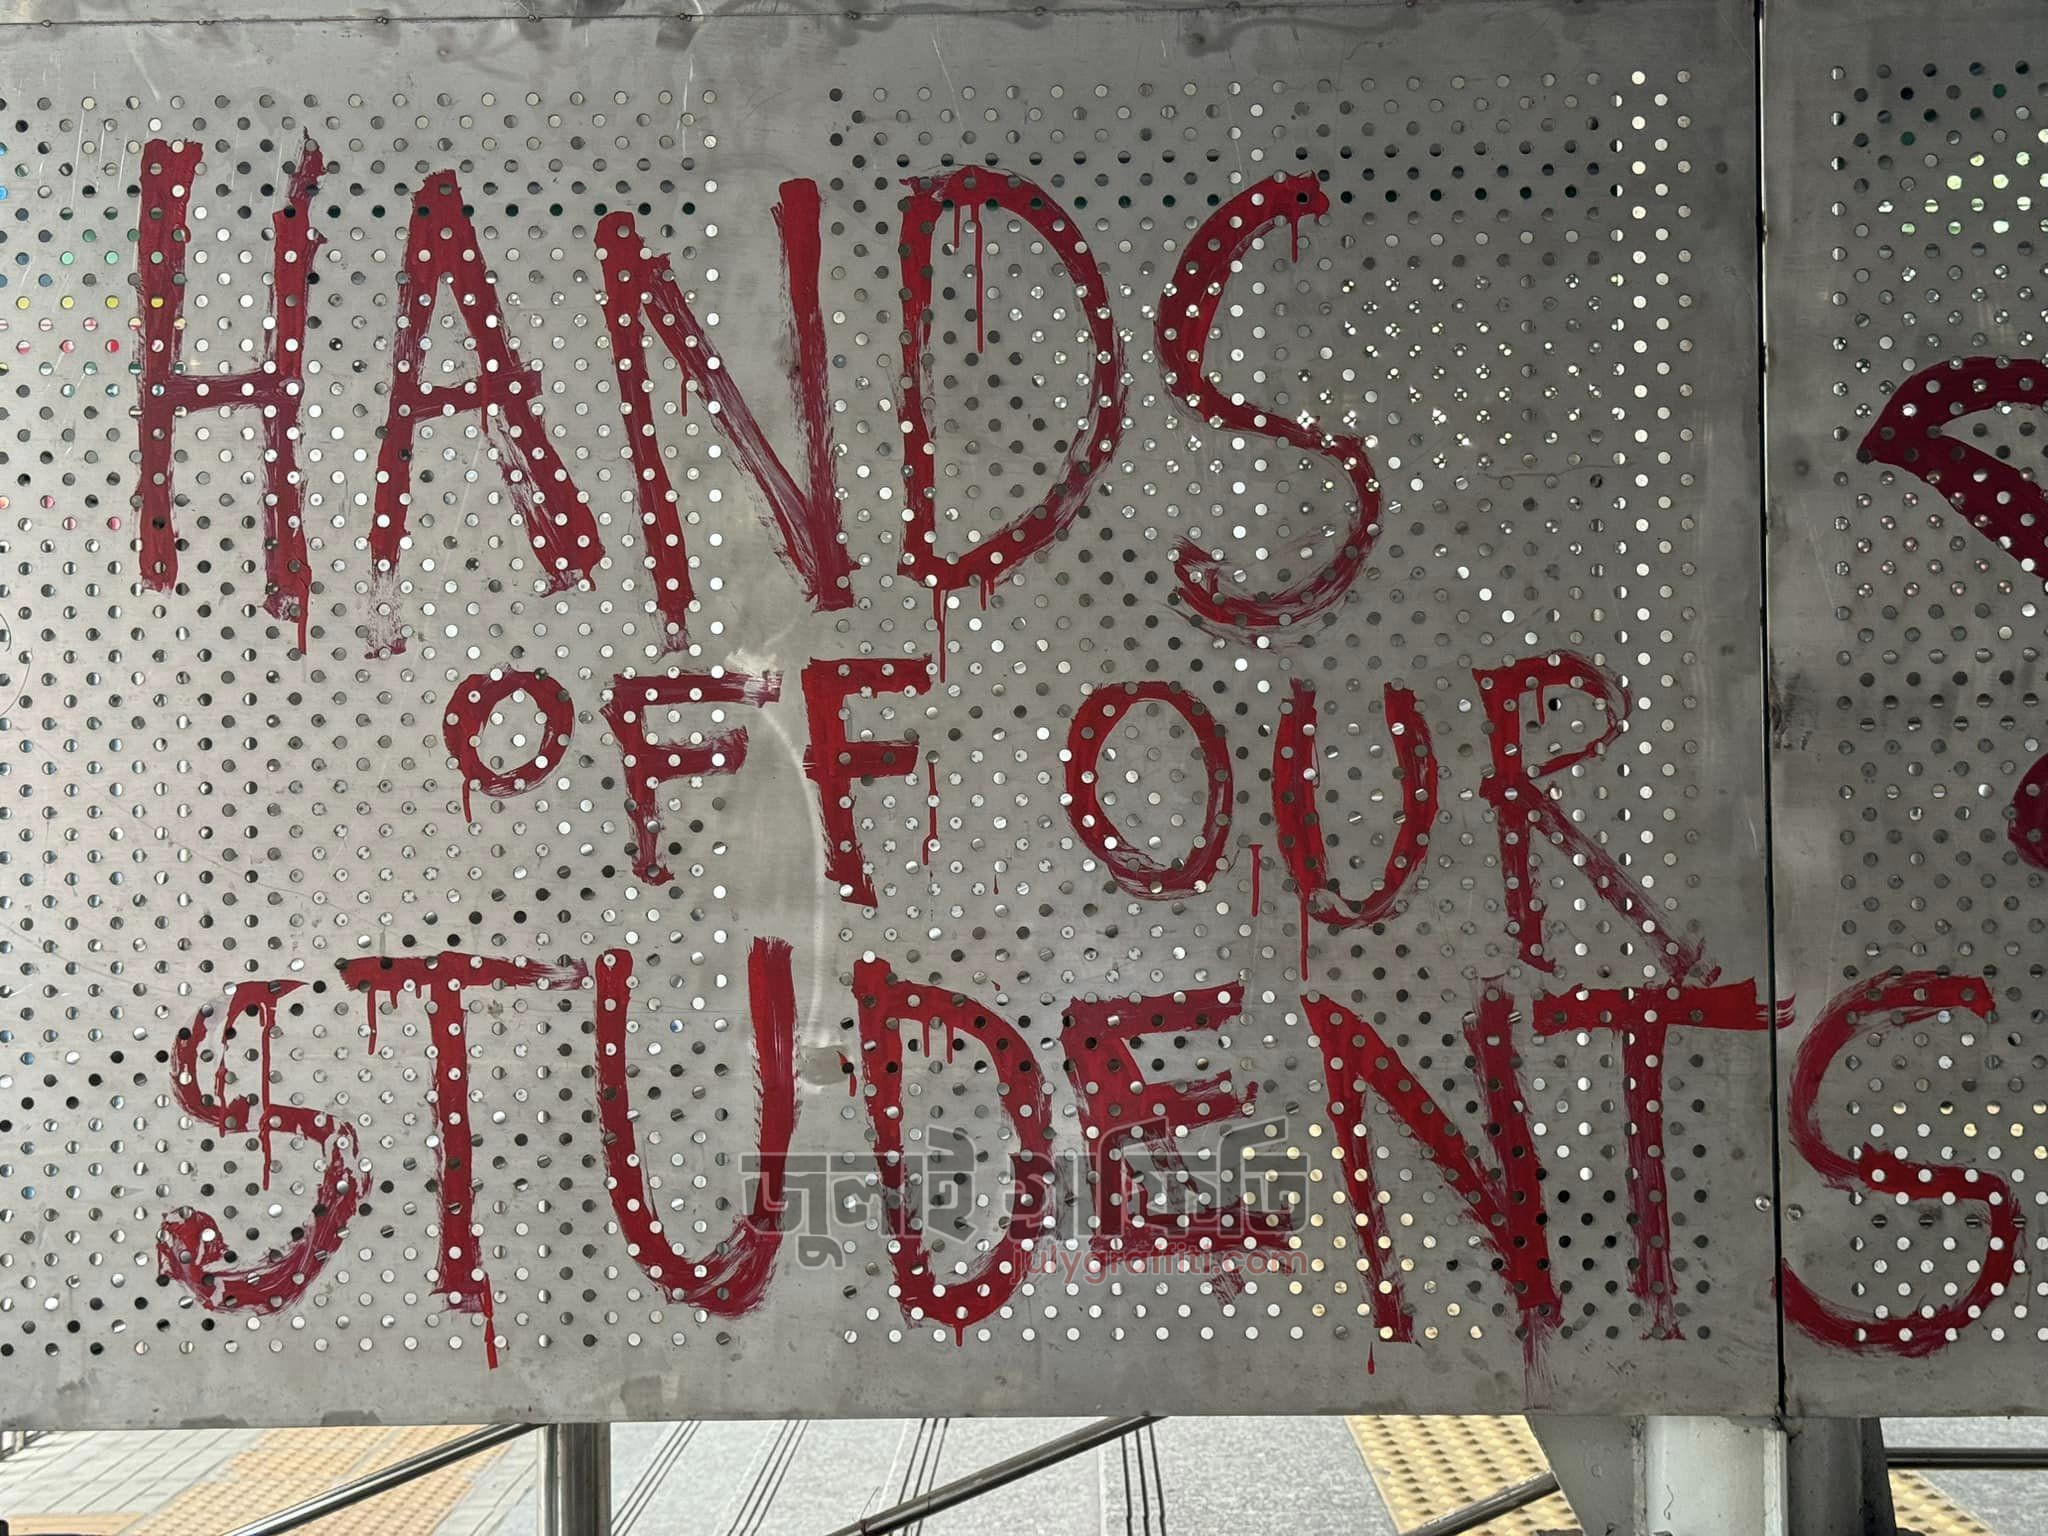 HANDS
OFF OUR
STUDENTS
জুলাই গ্রাফিতি
julygraffiti.com